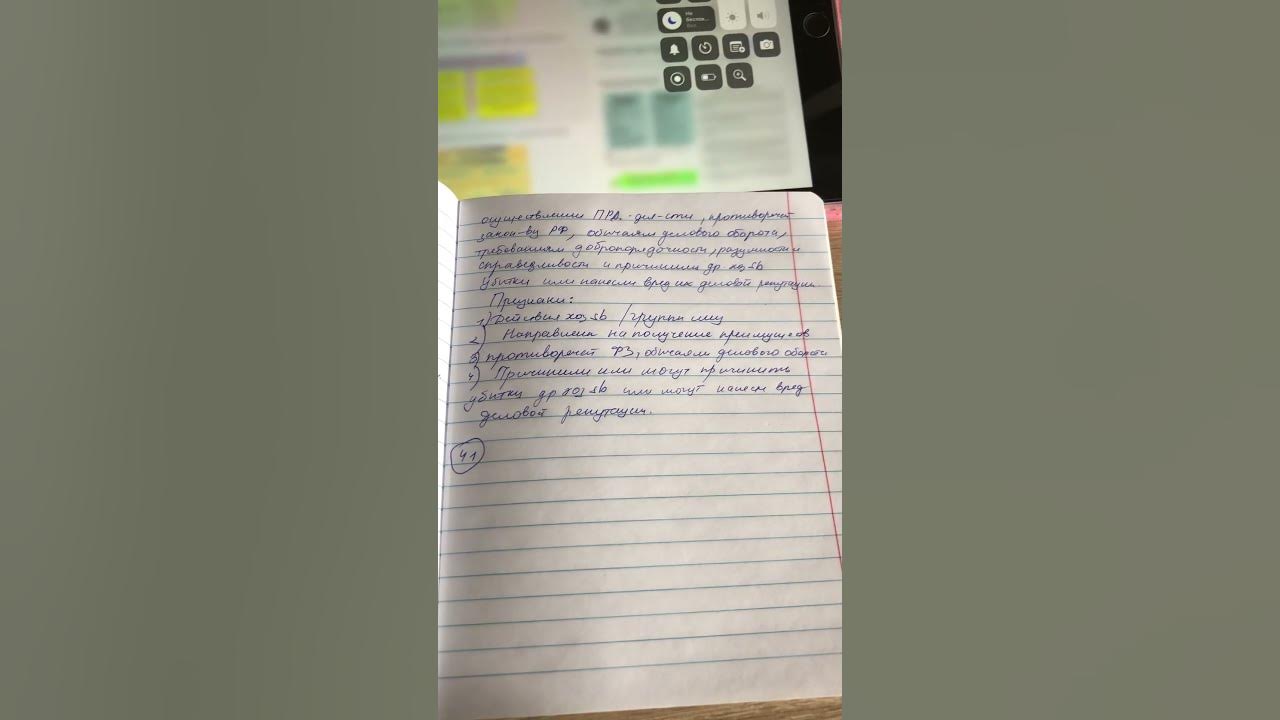 Не
беспок...
Вкл.
осуществлении ПРД. дея-сти, противоречат
закон-ву РФ, обычаям делового оборота,
требованиям добропорядочности, разумности и
справедливости и причинили др. хоз sb
убытки или нанесли вред их деловой репутации.
Признаки:
1) Действия хоз sb / группы лиц
2) Направлены на получение преимуществ
3) противоречат ФЗ, обычаям делового оборота
4) Причинили или могут причинить
убытки др хоз sb или могут нанести вред
деловой репутации.
41